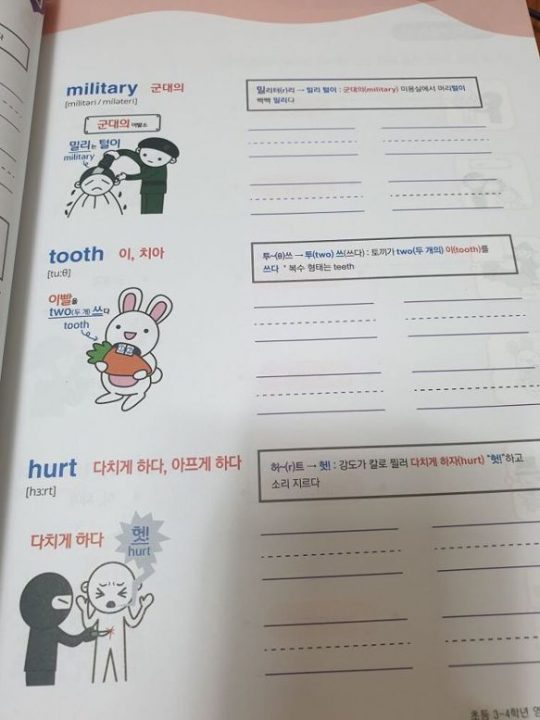 military 군대의
[militəri / miləteri]
밀리터(r)리 → 밀리 털이 : 군대의(military) 미용실에서 머리털이
빡빡 밀리다
군대의 이발소
밀리는 털이
military
tooth 이, 치아
[tu:θ]
투~(θ)쓰 → 투(two) 쓰(쓰다) : 토끼가 two(두 개의) 이(tooth)를
쓰다 * 복수 형태는 teeth
이빨을
two(두 개) 쓰다
tooth
hurt 다치게 하다, 아프게 하다
[hɜ:rt]
허~(r)트 → 헛! : 강도가 칼로 찔러 다치게 하자(hurt) "헛!"하고
소리 지르다
다치게 하다
헛!
hurt
초등 3-4학년 영